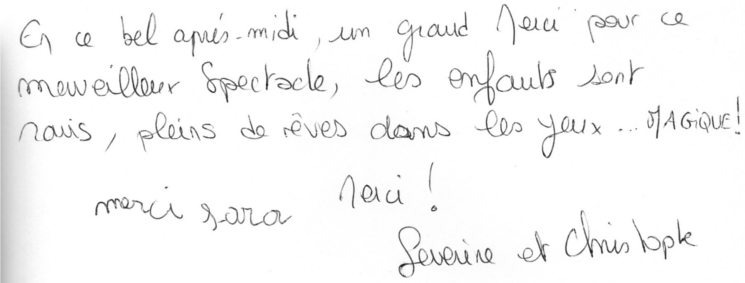 En ce bel après-midi, un grand Merci pour ce
merveilleux Spectacle, les enfants sont
ravis, pleins de rêves dans les yeux... MAGIQUE!
Merci !
merci sara
Severine et Christophe